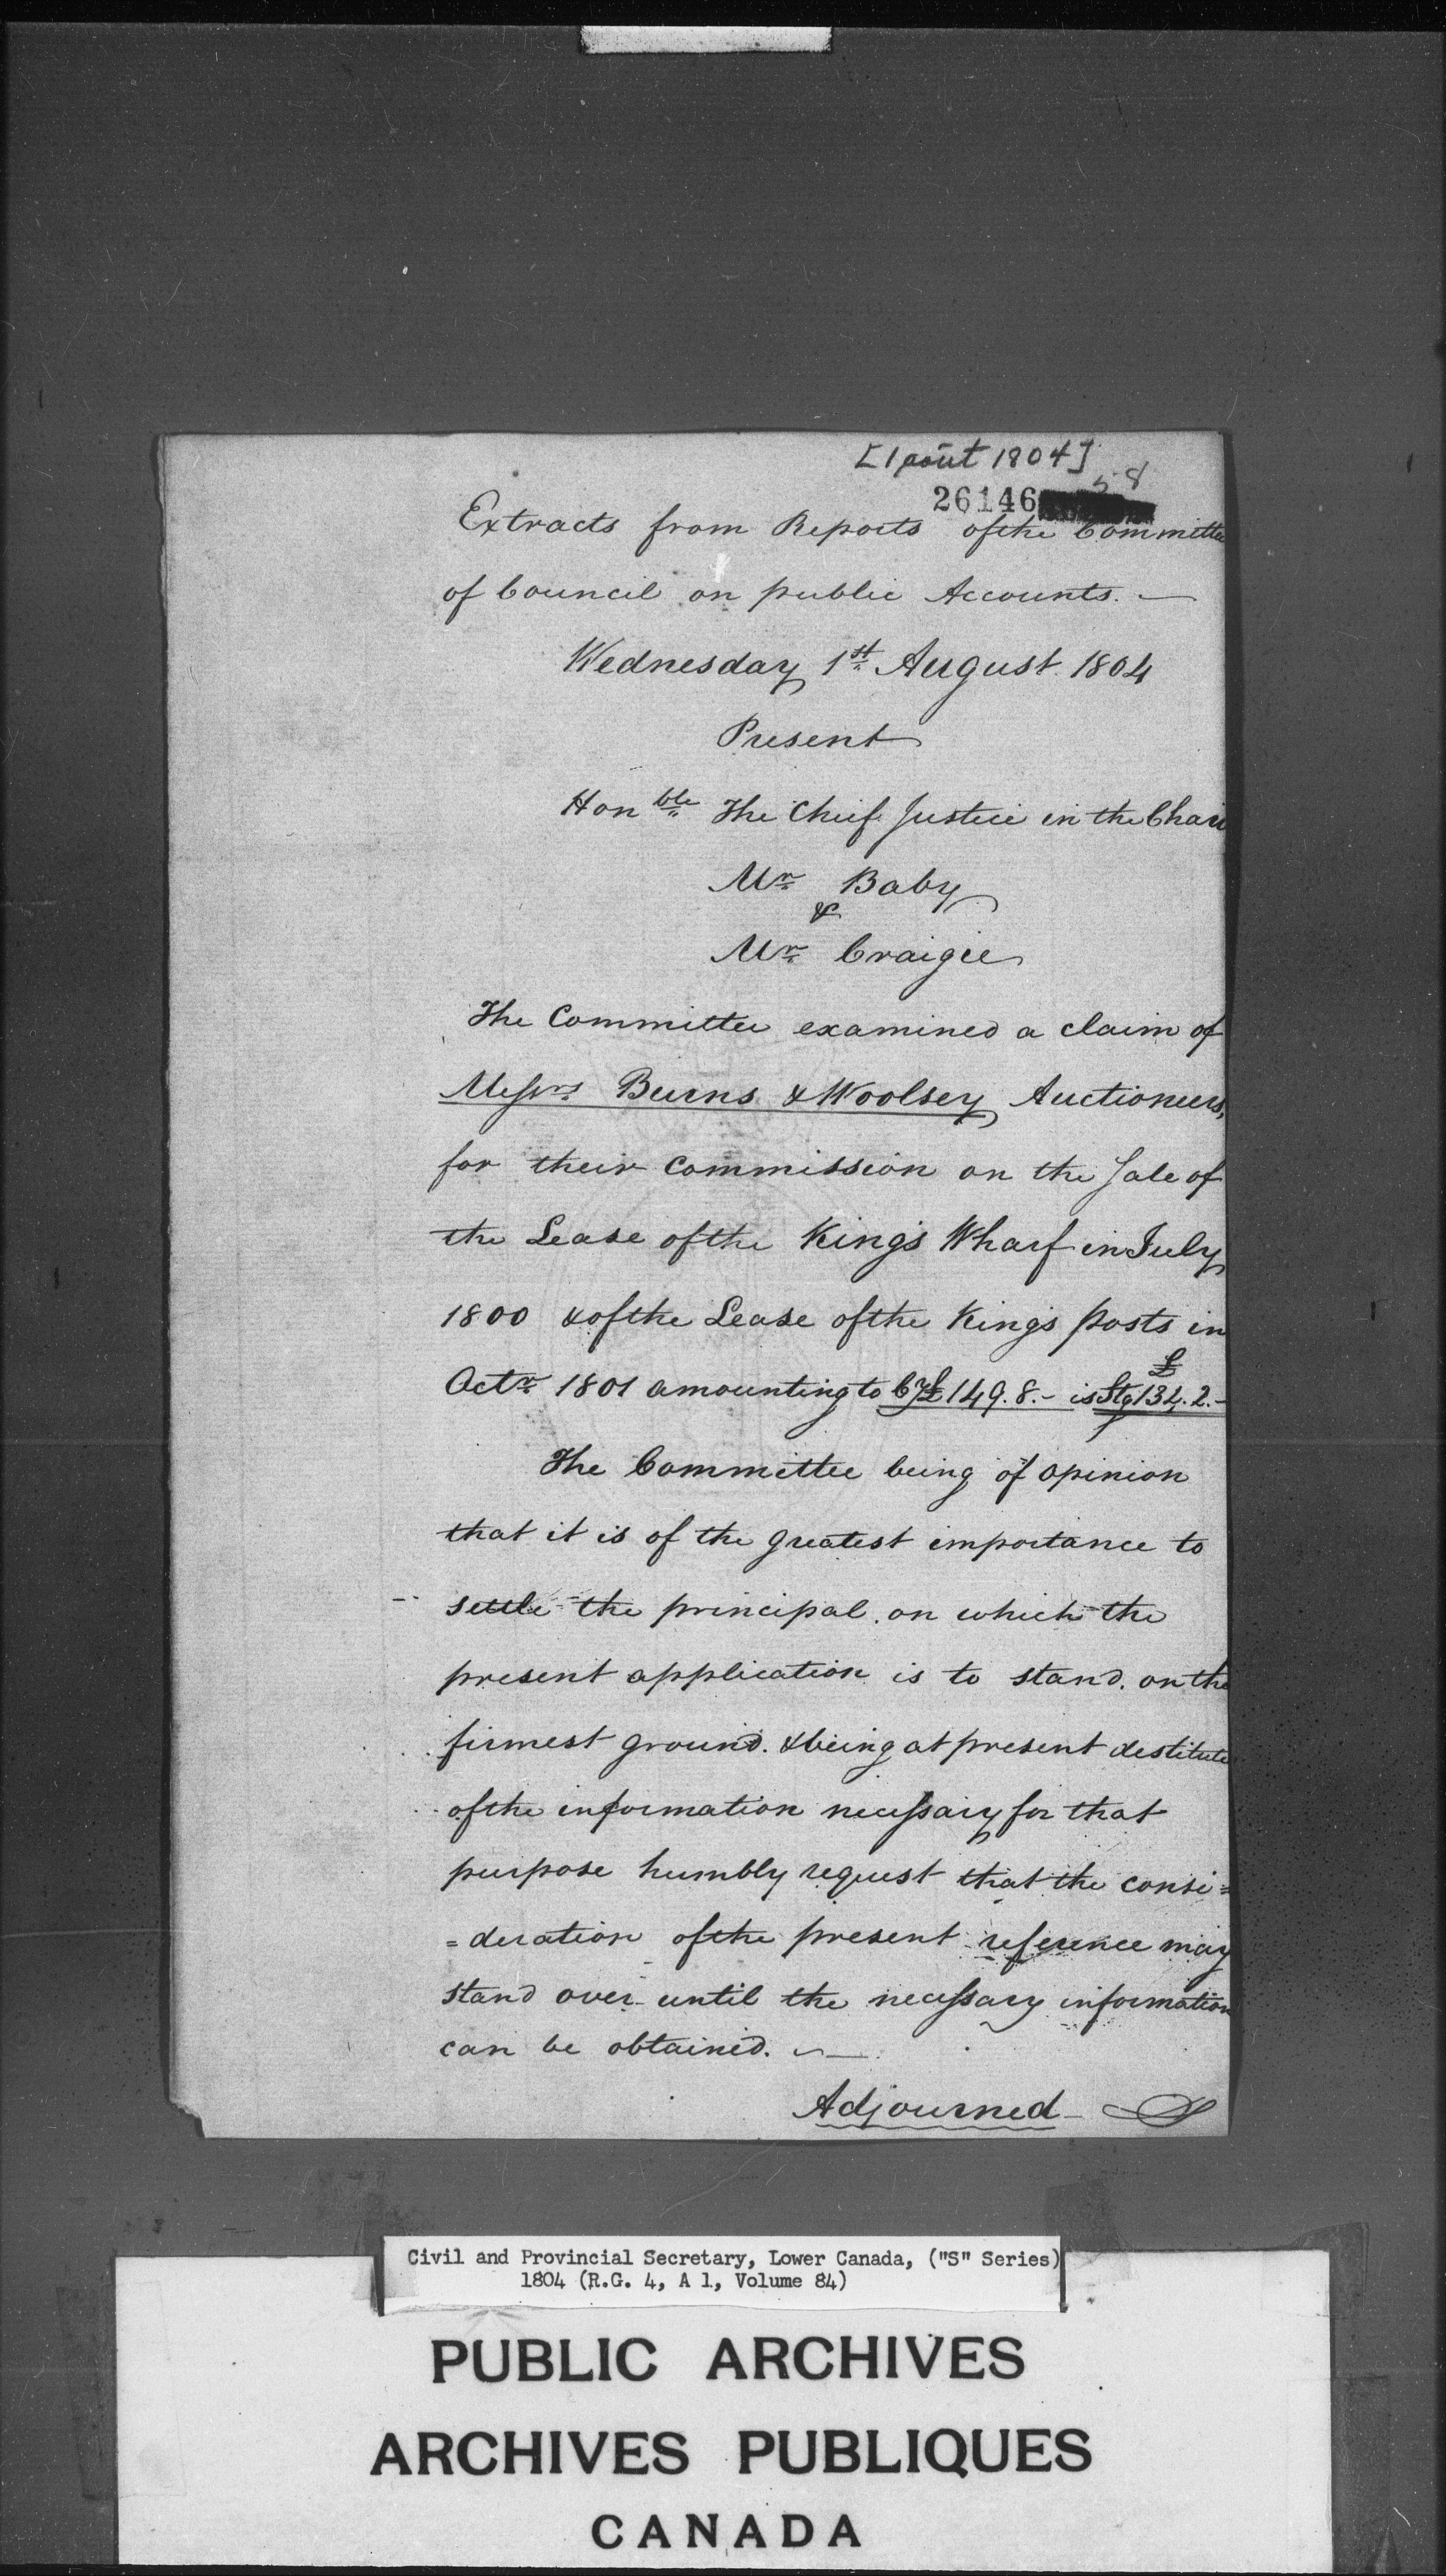 [1 août 1804]
26146 58
Extracts from Reports of the Committee
of Council on public Accounts. —
Wednesday 1st August 1804
Present
Honble The Chief Justice in the Chair
Mr Baby
&
Mr Craigie
The Committee examined a claim of
Messrs Burns & Woolsey Auctioneers,
for their Commission on the Sale of
the Lease of the King's Wharf in July
1800 & of the Lease of the King's posts in
Octr 1801 amounting to Cy £149.8.- is Stg £134.2.-
The Committee being of opinion
that it is of the greatest importance to
settle the principal on which the
present application is to stand. on the
firmest ground. & being at present destitute
of the information necessary for that
purpose humbly request that the consi=
=deration of the present reference may
stand over until the necessary information
can be obtained. —
Adjourned
Civil and Provincial Secretary, Lower Canada, ("S" Series)
1804 (R.G. 4, A 1, Volume 84)
PUBLIC ARCHIVES
ARCHIVES PUBLIQUES
CANADA